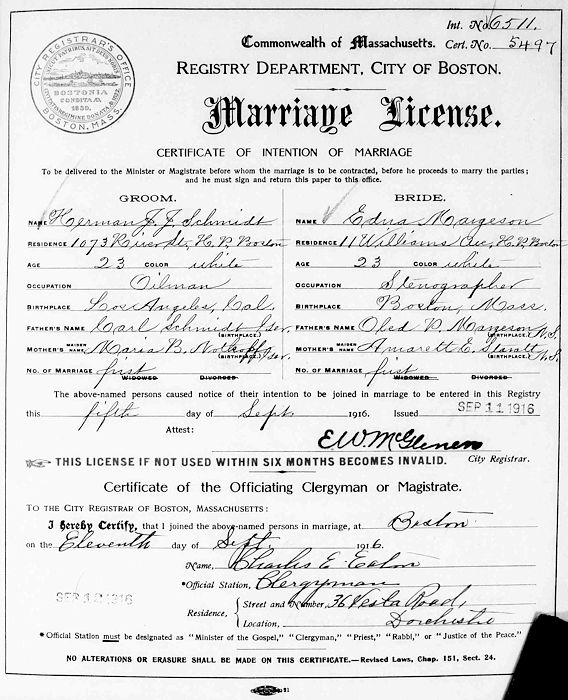 Int. No. 6511.
Commonwealth of Massachusetts. Cert. No. 5497
CITY REGISTRAR'S OFFICE
BOSTONIA
CONDITA A.D.
1630.
BOSTON, MASS.
REGISTRY DEPARTMENT, CITY OF BOSTON.
Marriage License.
CERTIFICATE OF INTENTION OF MARRIAGE
To be delivered to the Minister or Magistrate before whom the marriage is to be contracted, before he proceeds to marry the parties;
and he must sign and return this paper to this office.
GROOM. BRIDE.
NAME Herman J. J. Schmidt NAME Edna Margeson
RESIDENCE 1073 River St., H.P. Boston RESIDENCE 11 Williams Ave, H.P. Boston
AGE 23 COLOR white AGE 23 COLOR white
OCCUPATION Oilman OCCUPATION Stenographer
BIRTHPLACE Los Angeles, Cal. BIRTHPLACE Boston, Mass.
FATHER'S NAME Carl Schmidt (BIRTHPLACE.) Ger. FATHER'S NAME Oled P. Margeson (BIRTHPLACE.) N.S.
MOTHER'S MAIDEN NAME Maria B. (BIRTHPLACE.) Ger. MOTHER'S MAIDEN NAME E. (BIRTHPLACE.) N.S.
NO. OF MARRIAGE first WIDOWED DIVORCED NO. OF MARRIAGE first WIDOWED DIVORCED
The above-named persons caused notice of their intention to be joined in marriage to be entered in this Registry
this fifth day of Sept 1916. Issued SEP 11 1916
Attest: E.W. McGlenen
City Registrar.
THIS LICENSE IF NOT USED WITHIN SIX MONTHS BECOMES INVALID.
Certificate of the Officiating Clergyman or Magistrate.
TO THE CITY REGISTRAR OF BOSTON, MASSACHUSETTS:
I Hereby Certify, that I joined the above-named persons in marriage, at Boston
on the Eleventh day of Sept. 1916.
Name, Charles E. Eaton
*Official Station, Clergyman
SEP 12 1916
Residence, { Street and Number, 36 Vesta Road,
Location, Dorchester
*Official Station must be designated as "Minister of the Gospel," "Clergyman," "Priest," "Rabbi," or "Justice of the Peace."
NO ALTERATIONS OR ERASURE SHALL BE MADE ON THIS CERTIFICATE.—Revised Laws, Chap. 151, Sect. 24.